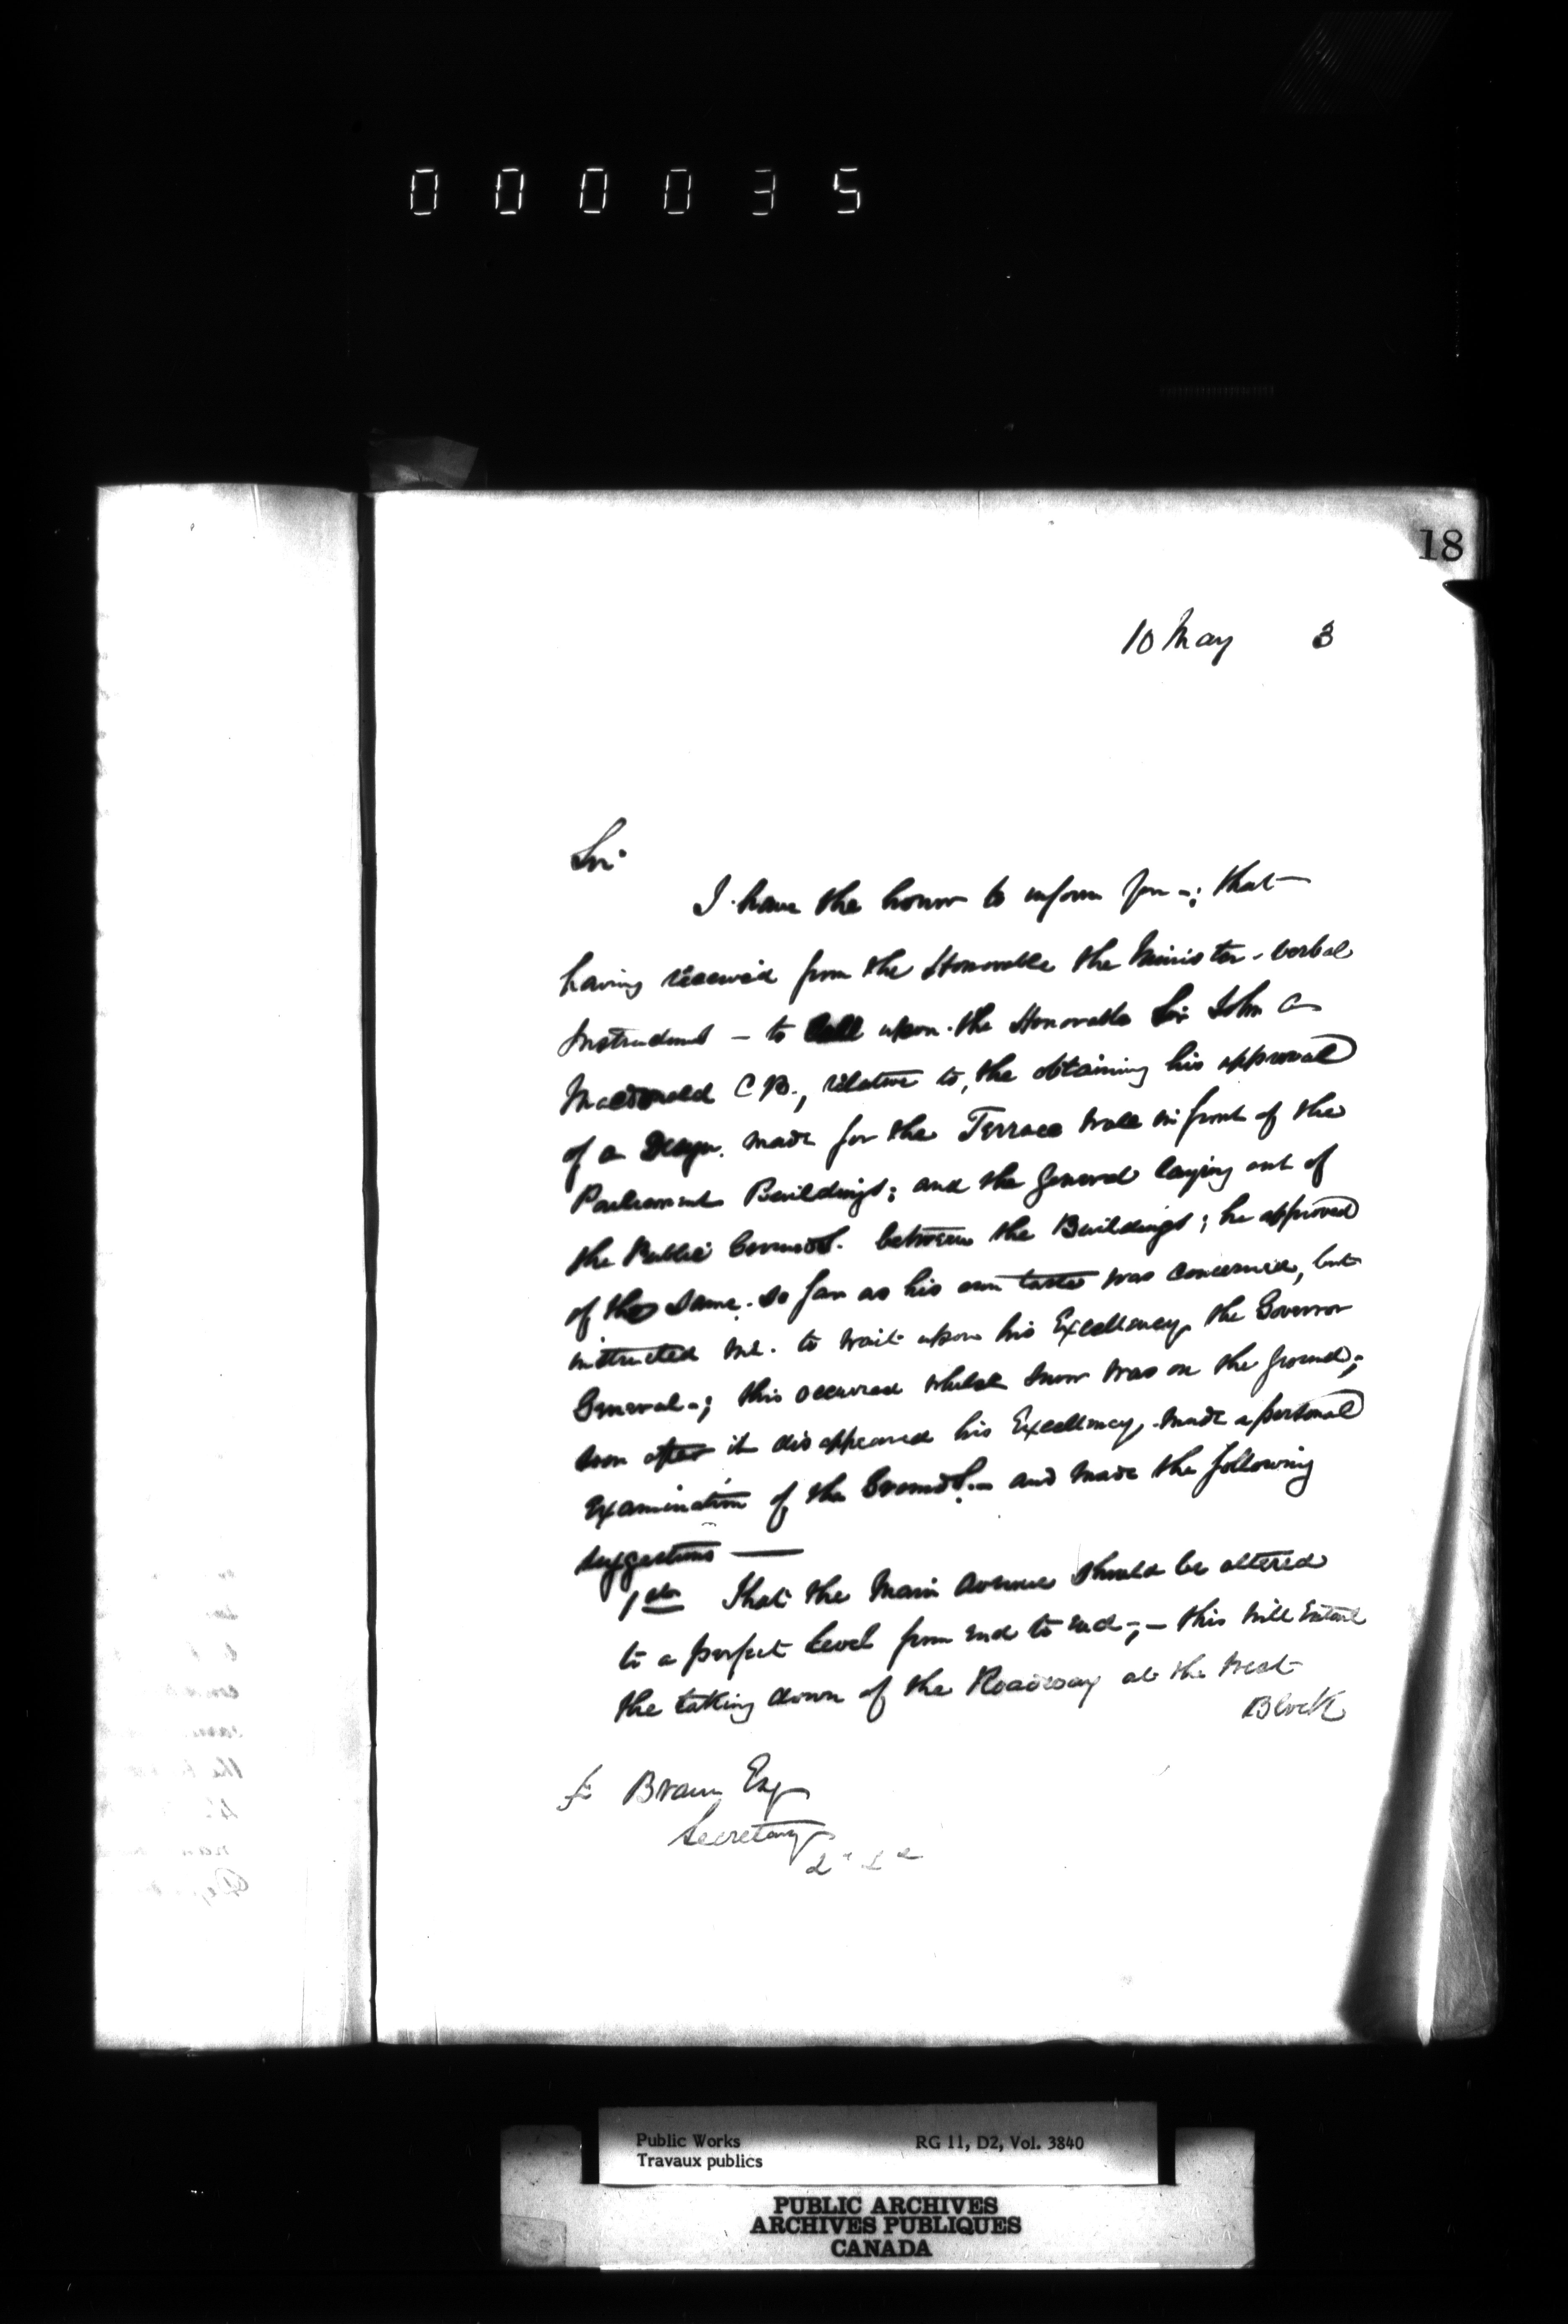 000035
18
10 May 3
Sir
I have the honor to inform you -; that
having received from the Honorable the Minister - verbal
Instructions - to Call upon the Honorable Sir John A
Macdonald C B., relative to, the obtaining his approval
of a Design made for the Terrace Wall in front of the
Parliament Buildings; and the General laying out of
the Public Grounds. between the Buildings; he approved
of the same. so far as his own taste was concerned, but
instructed me. to wait upon his Excellency the Governor
General -; this occurred whilst snow was on the ground;
soon after it disappeared his Excellency - made a personal
Examination of the Grounds. - and made the following
suggestions —
1st That the Main Avenue should be altered
to a perfect level from end to end -; - this will entail
the taking down of the Roadway at the West
Block
F. Braun Esq
Secretary
Public Works
Travaux publics
RG 11, D2, Vol. 3840
PUBLIC ARCHIVES
ARCHIVES PUBLIQUES
CANADA